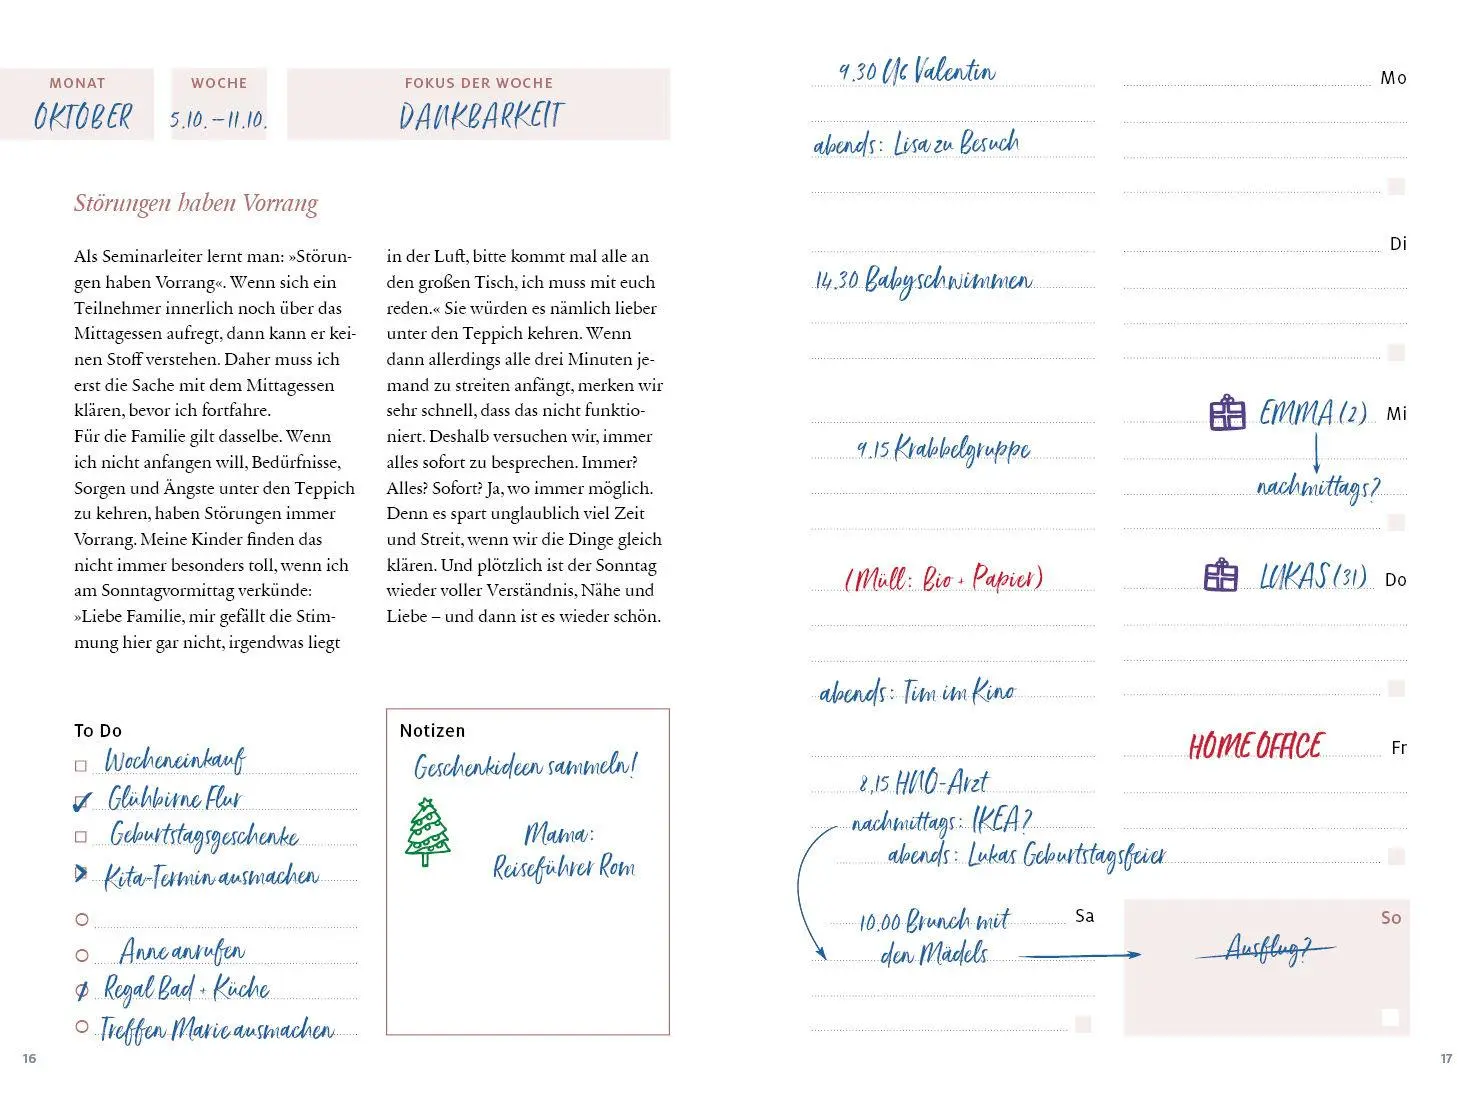 MONAT
OKTOBER
WOCHE
5.10. – 11.10.
FOKUS DER WOCHE
DANKBARKEIT
Störungen haben Vorrang
Als Seminarleiter lernt man: »Störun-
gen haben Vorrang«. Wenn sich ein
Teilnehmer innerlich noch über das
Mittagessen aufregt, dann kann er kei-
nen Stoff verstehen. Daher muss ich
erst die Sache mit dem Mittagessen
klären, bevor ich fortfahre.
Für die Familie gilt dasselbe. Wenn
ich nicht anfangen will, Bedürfnisse,
Sorgen und Ängste unter den Teppich
zu kehren, haben Störungen immer
Vorrang. Meine Kinder finden das
nicht immer besonders toll, wenn ich
am Sonntagvormittag verkünde:
»Liebe Familie, mir gefällt die Stim-
mung hier gar nicht, irgendwas liegt
in der Luft, bitte kommt mal alle an
den großen Tisch, ich muss mit euch
reden.« Sie würden es nämlich lieber
unter den Teppich kehren. Wenn
dann allerdings alle drei Minuten je-
mand zu streiten anfängt, merken wir
sehr schnell, dass das nicht funktio-
niert. Deshalb versuchen wir, immer
alles sofort zu besprechen. Immer?
Alles? Sofort? Ja, wo immer möglich.
Denn es spart unglaublich viel Zeit
und Streit, wenn wir die Dinge gleich
klären. Und plötzlich ist der Sonntag
wieder voller Verständnis, Nähe und
Liebe – und dann ist es wieder schön.
To Do
Wocheneinkauf
Glühbirne Flur
Geburtstagsgeschenke
Kita-Termin ausmachen
Anne anrufen
Regal Bad + Küche
Treffen Marie ausmachen
Notizen
Geschenkideen sammeln!
Mama:
Reiseführer Rom
16
9.30 U6 Valentin
Mo
abends: Lisa zu Besuch
Di
14.30 Babyschwimmen
EMMA (2)
Mi
9.15 Krabbelgruppe
nachmittags?
(Müll: Bio + Papier)
LUKAS (31)
Do
abends: Tim im Kino
HOME OFFICE
Fr
8.15 HNO-Arzt
nachmittags: IKEA?
abends: Lukas Geburtstagsfeier
10.00 Brunch mit
Sa
den Mädels
So
Ausflug?
17